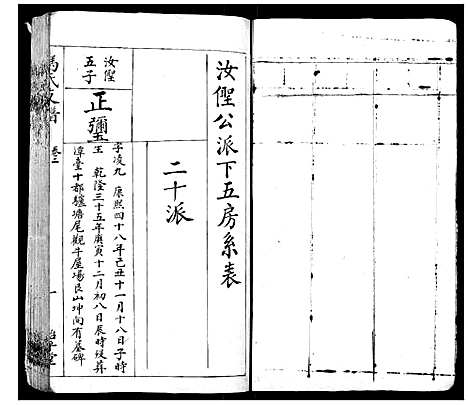 汝俚公派下五房系表
二十派
汝俚
五子
正彌
字凌九 康熙四十八年己丑十一月十八日子時
生 乾隆三十五年庚寅十二月初八日辰時歿葬
潭臺十都貙塘尾觀牛屋場艮山坤向有墓碑
馮氏 譜 卷
一